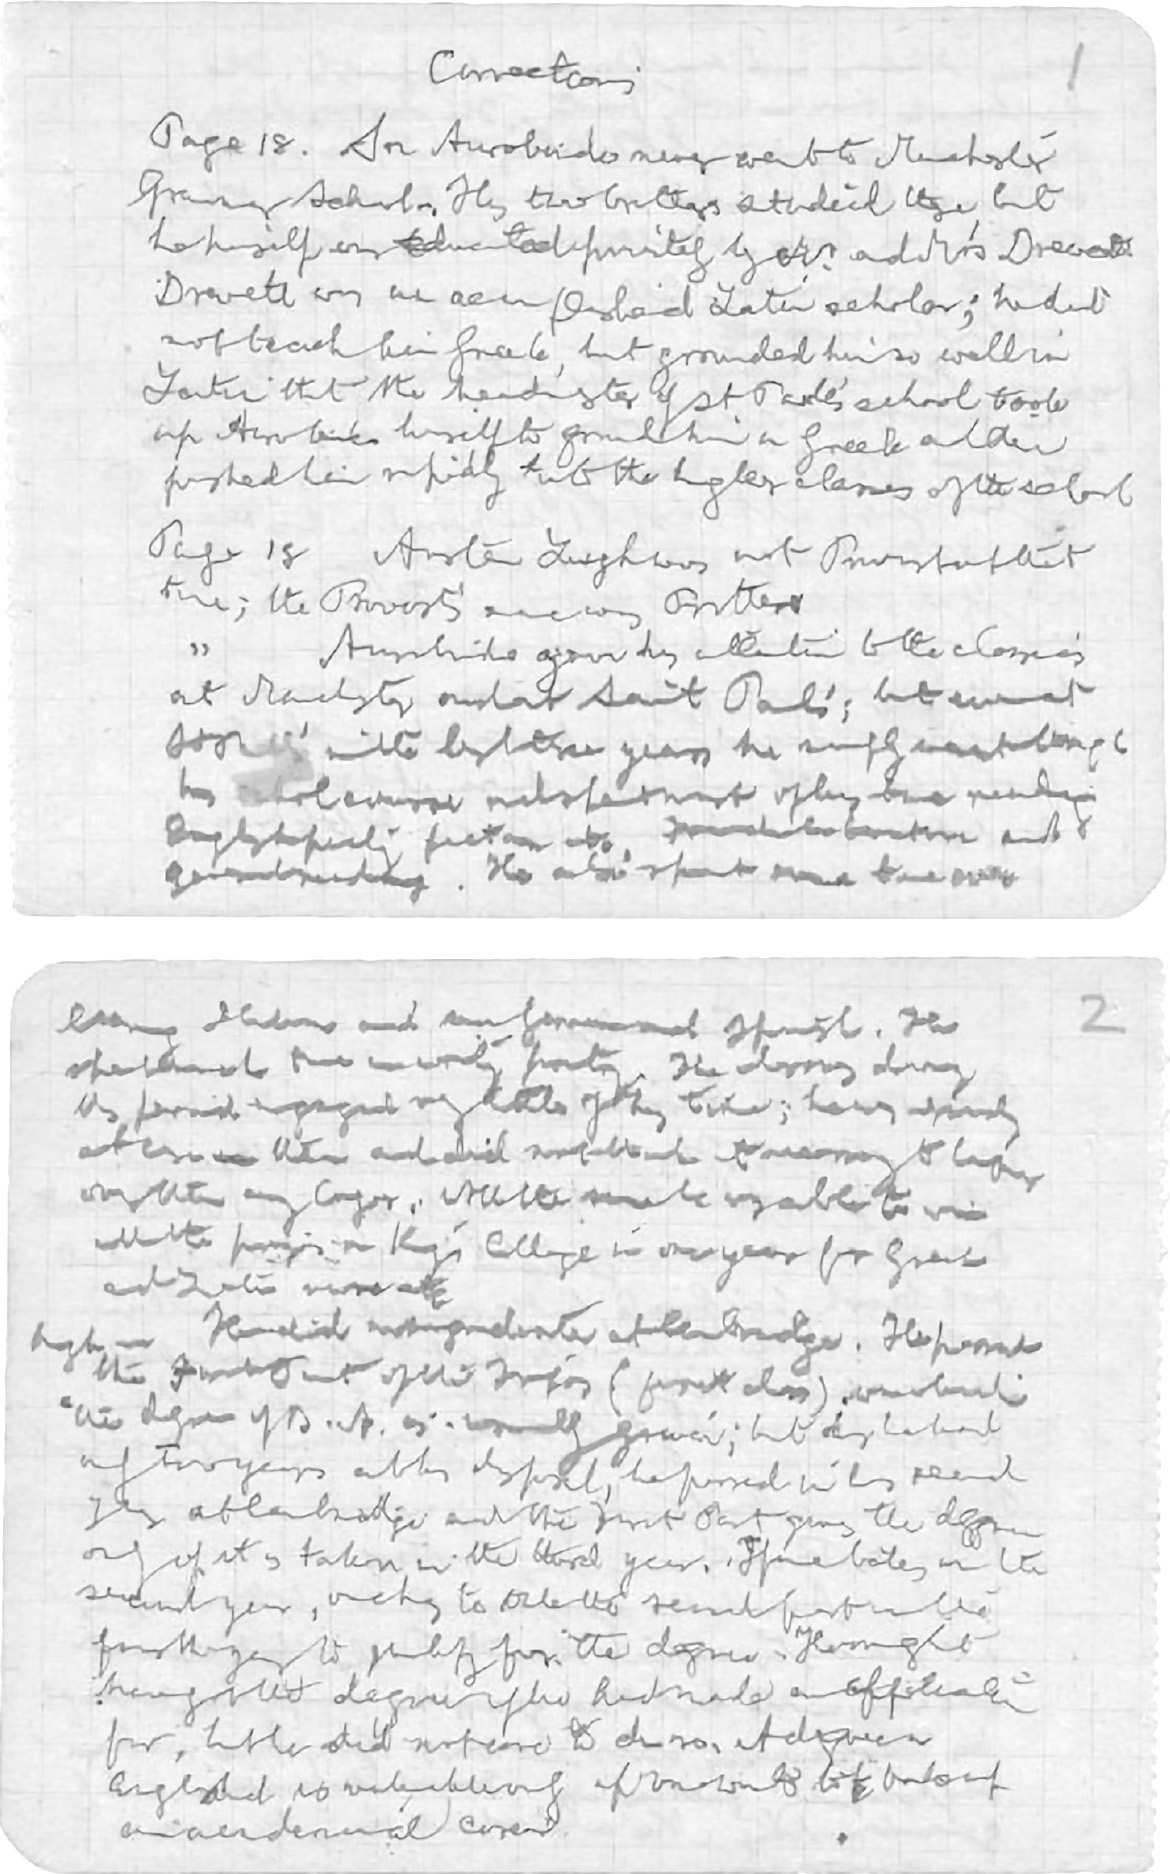 Corrections
1
Page 18. Sri Aurobindo never went to Manchester
Grammar School. His two brothers studied there, but
he himself was educated privately by Mr. and Mrs Drewett.
Drewett was an accomplished Latin scholar; he did
not teach him Greek, but grounded him so well in
Latin that the headmaster of St. Paul's school took
up Aurobindo himself to ground him in Greek and then
pushed him rapidly into the higher classes of the school
Page 18 Austen Leigh was not Provost at that
time; the Provost's name was Prothero
" Aurobindo gave his attention to the classics
at Manchester and at Saint Paul's; but even at
St Paul's in the last three years he simply went through
his school course and spent most of his time reading
English poetry, fiction etc, French literature and
general reading. He also spent some time over
2
learning Italian and some German and Spanish. He
spent much time in writing poetry. The school during
this period engaged very little of his time; he was already
at ease in them and did not think it necessary to labour
over them any longer. All the same he was able to win
all the prizes in King's College in one year for Greek
and Latin verse etc
He did not graduate at Cambridge. He passed
high in
the First Part of the Tripos (first class), on which
the degree of B. A. is usually given; but as he had
only two years at his disposal, he passed in his second
year at Cambridge and the First Part gives the degree
only if it is taken in the third year. If one takes it in the
second year, one has to take the second part in the
fourth year to qualify for the degree. He might
have got the degree if he had made an application
for it, but he did not care to do so. A degree in
England is valuable only if one wants to take up
an academical career.